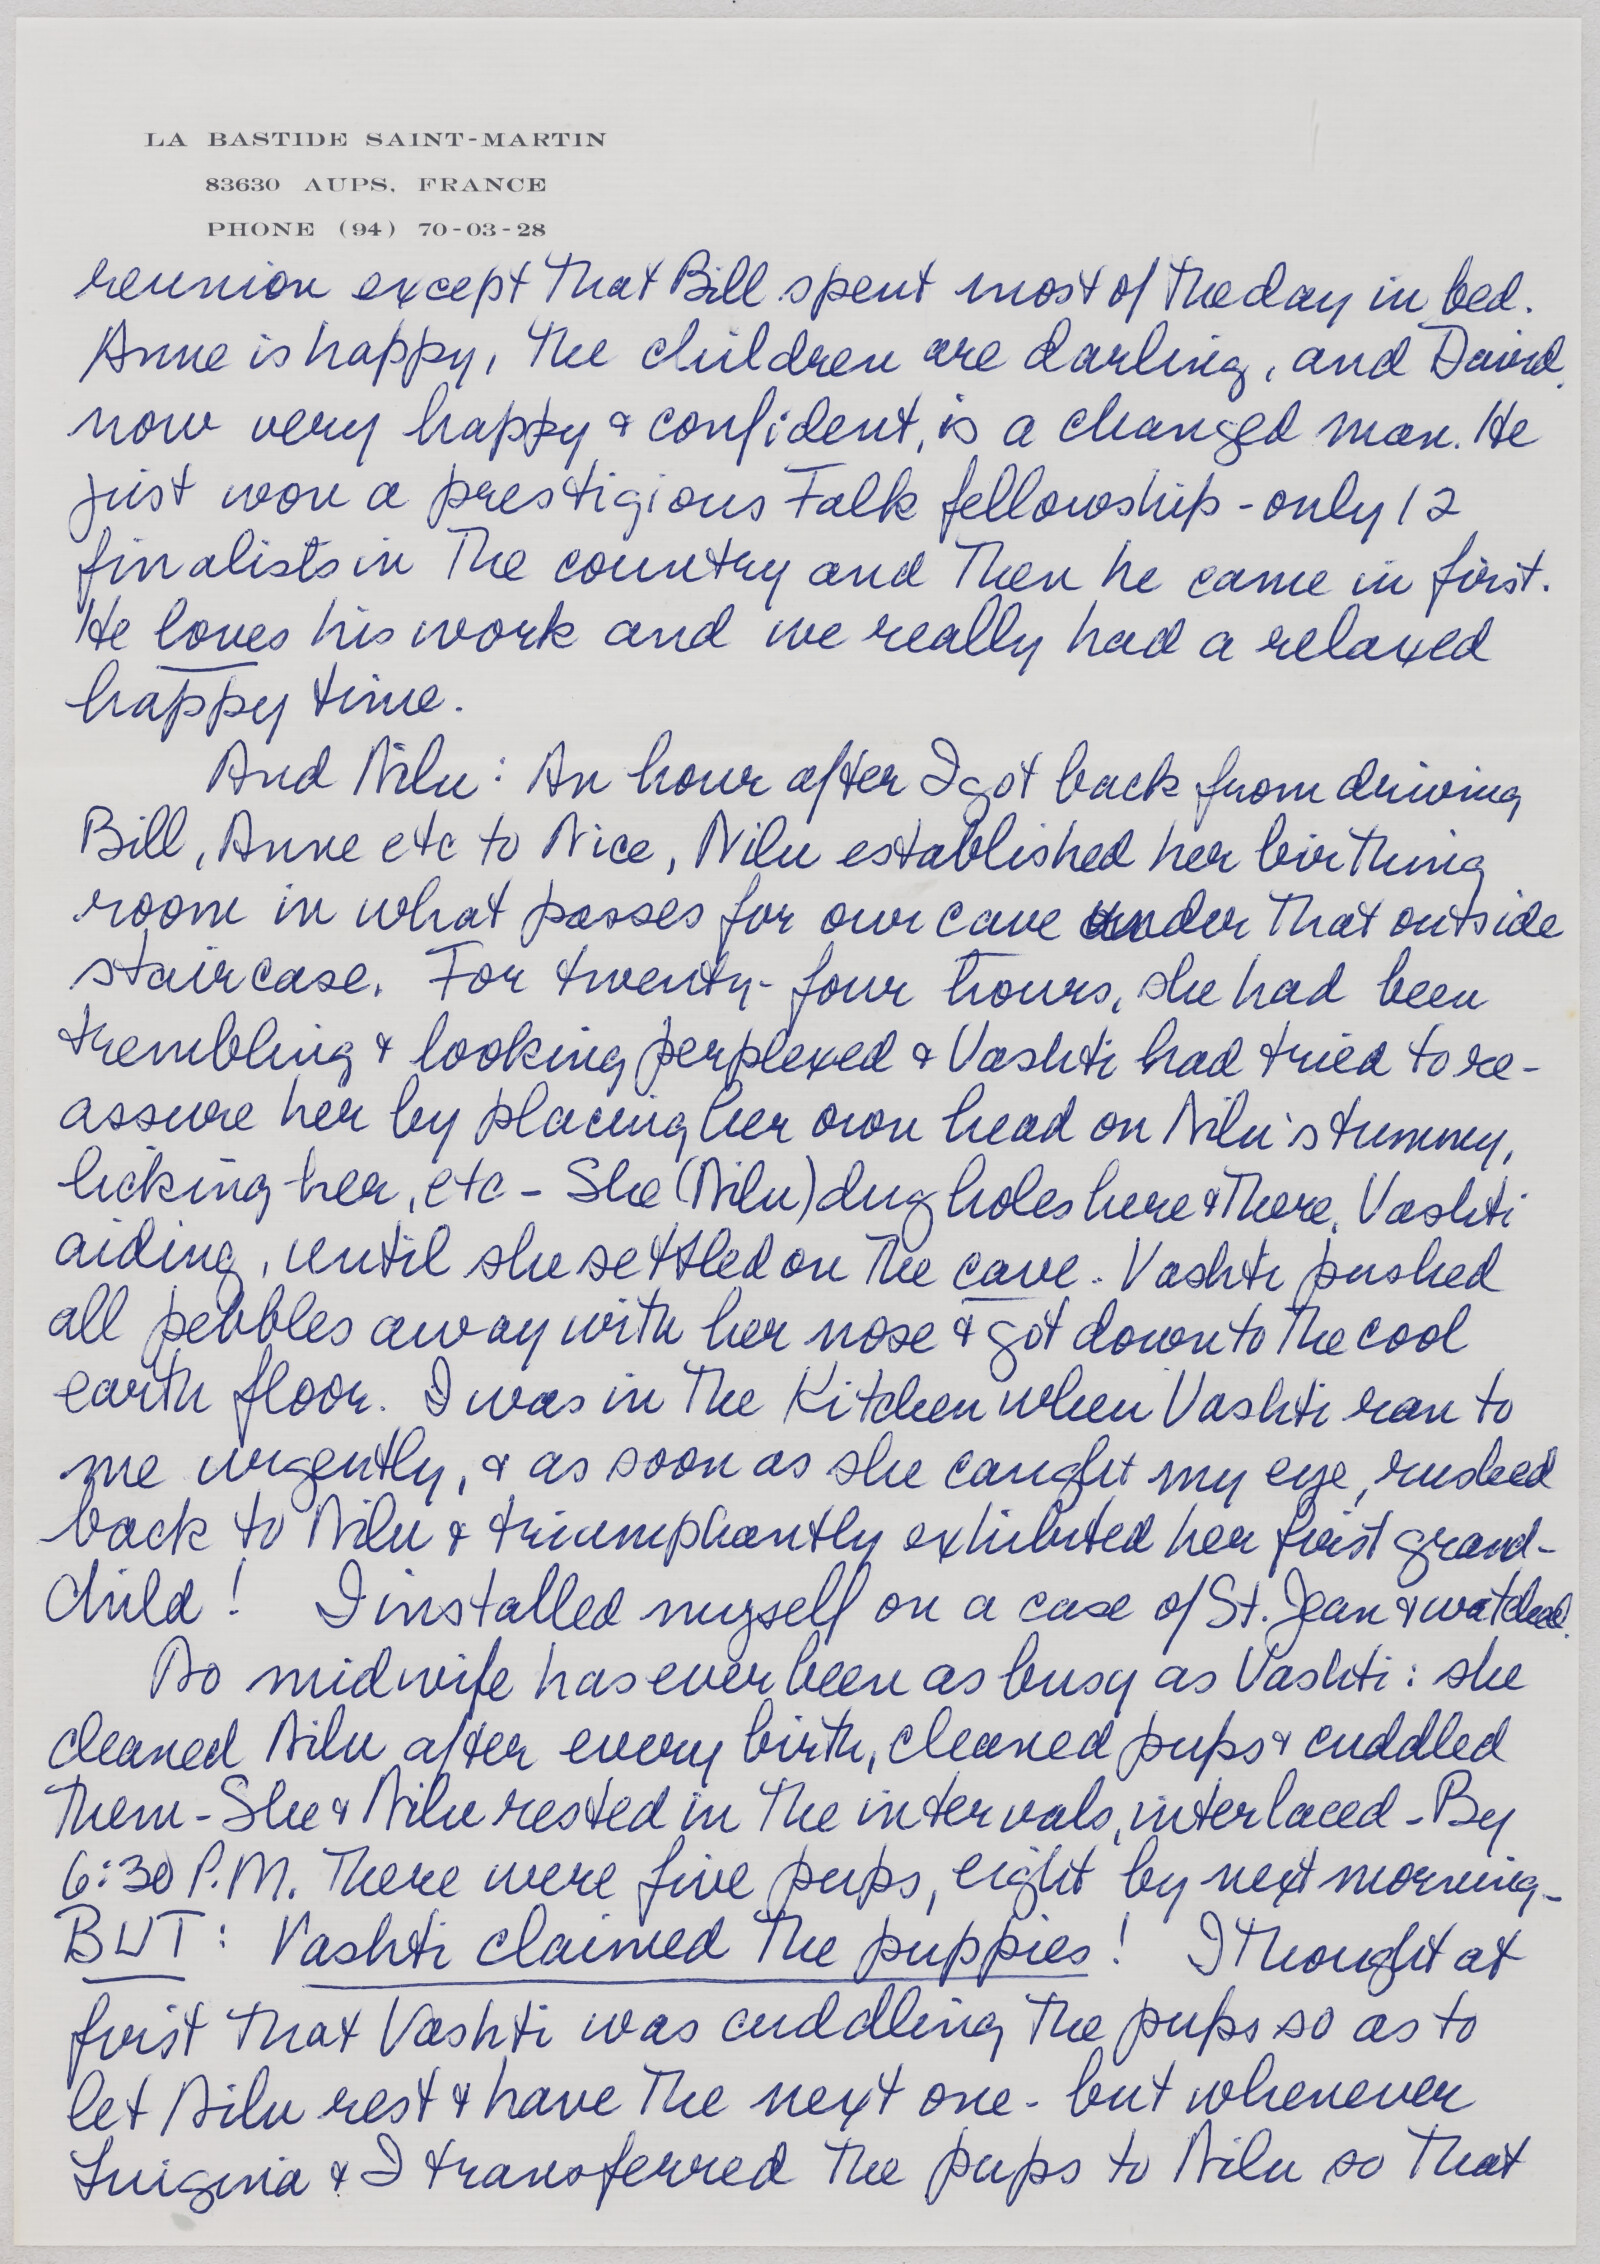 LA BASTIDE SAINT-MARTIN
83630 AUPS, FRANCE
PHONE (94) 70-03-28
reunion except that Bill spent most of the day in bed.
Anne is happy, the children are darling, and David,
now very happy & confident, is a changed man. He
just won a prestigious Falk fellowship - only 12
finalists in the country and then he came in first.
He loves his work and we really had a relaxed
happy time.
And Nilu: An hour after I got back from driving
Bill, Anne etc to Nice, Nilu established her birthing
room in what passes for our cave under that outside
staircase. For twenty-four hours, she had been
trembling & looking perplexed & Vashti had tried to re-
assure her by placing her own head on Nilu's tummy,
licking her, etc - She (Nilu) dug holes here & there, Vashti
aiding, until she settled on the cave. Vashti pushed
all pebbles away with her nose & got down to the cool
earth floor. I was in the kitchen when Vashti ran to
me urgently, & as soon as she caught my eye, rushed
back to Nilu & triumphantly exhibited her first grand-
child! I installed myself on a case of St. Jean & watched.
No midwife has ever been as busy as Vashti: she
cleaned Nilu after every birth, cleaned pups & cuddled
them - She & Nilu rested in the intervals, interlaced - By
6:30 P.M. there were five pups, eight by next morning -
BUT: Vashti claimed the puppies! I thought at
first that Vashti was cuddling the pups so as to
let Nilu rest & have the next one - but whenever
Luigina & I transferred the pups to Nilu so that